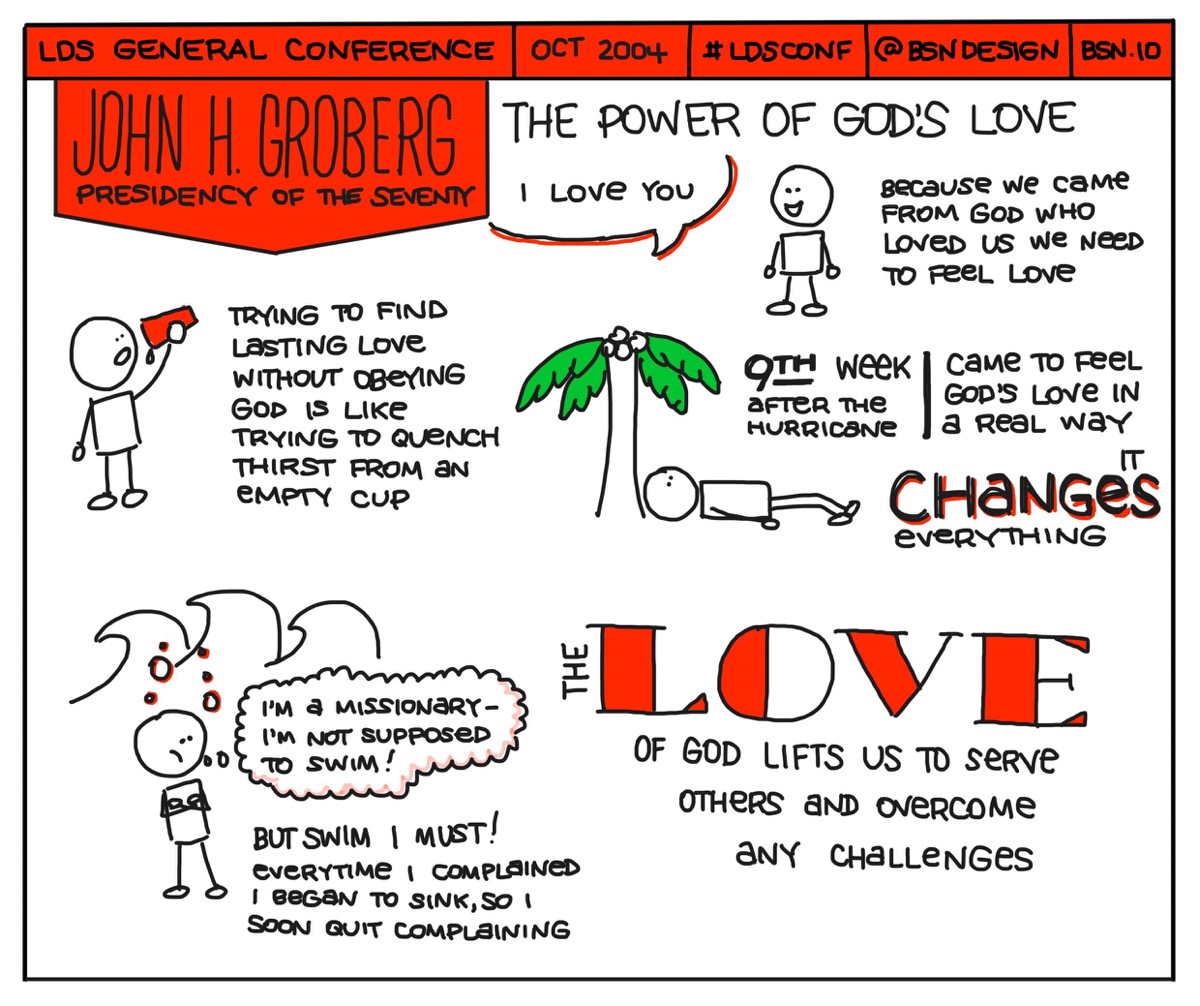 LDS GENERAL CONFERENCE
OCT 2004
#LDSCONF
@BSNDESIGN
BSN.IO
JOHN H. GROBERG
PRESIDENCY OF THE SEVENTY
THE POWER OF GOD'S LOVE
I LOVE YOU
BECAUSE WE CAME
FROM GOD WHO
LOVED US WE NEED
TO FEEL LOVE
TRYING TO FIND
LASTING LOVE
WITHOUT OBEYING
GOD IS LIKE
TRYING TO QUENCH
THIRST FROM AN
EMPTY CUP
9TH WEEK
AFTER THE
HURRICANE
CAME TO FEEL
GOD'S LOVE IN
A REAL WAY
IT
CHANGES
EVERYTHING
I'M A MISSIONARY-
I'M NOT SUPPOSED
TO SWIM!
BUT SWIM I MUST!
EVERYTIME I COMPLAINED
I BEGAN TO SINK, SO I
SOON QUIT COMPLAINING
THE LOVE
OF GOD LIFTS US TO SERVE
OTHERS AND OVERCOME
ANY CHALLENGES